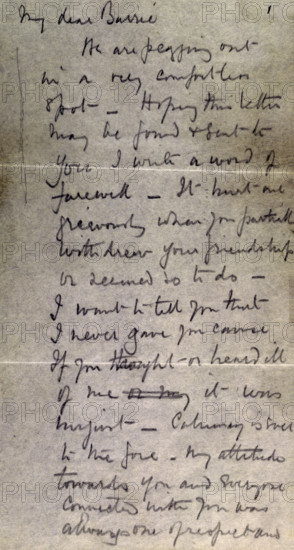 My dear Barrie
We are pegging out
in a very comfortless
spot – Hoping this letter
may be found & sent to
you I write a word of
farewell – It hurt me
grievously when you partially
withdrew your friendship
or seemed so to do –
I want to tell you that
I never gave you cause
If you thought or heard ill
of me it was
unjust – Calumny is ever
to the fore. My attitude
towards you and everyone
connected with you was
always one of respect and